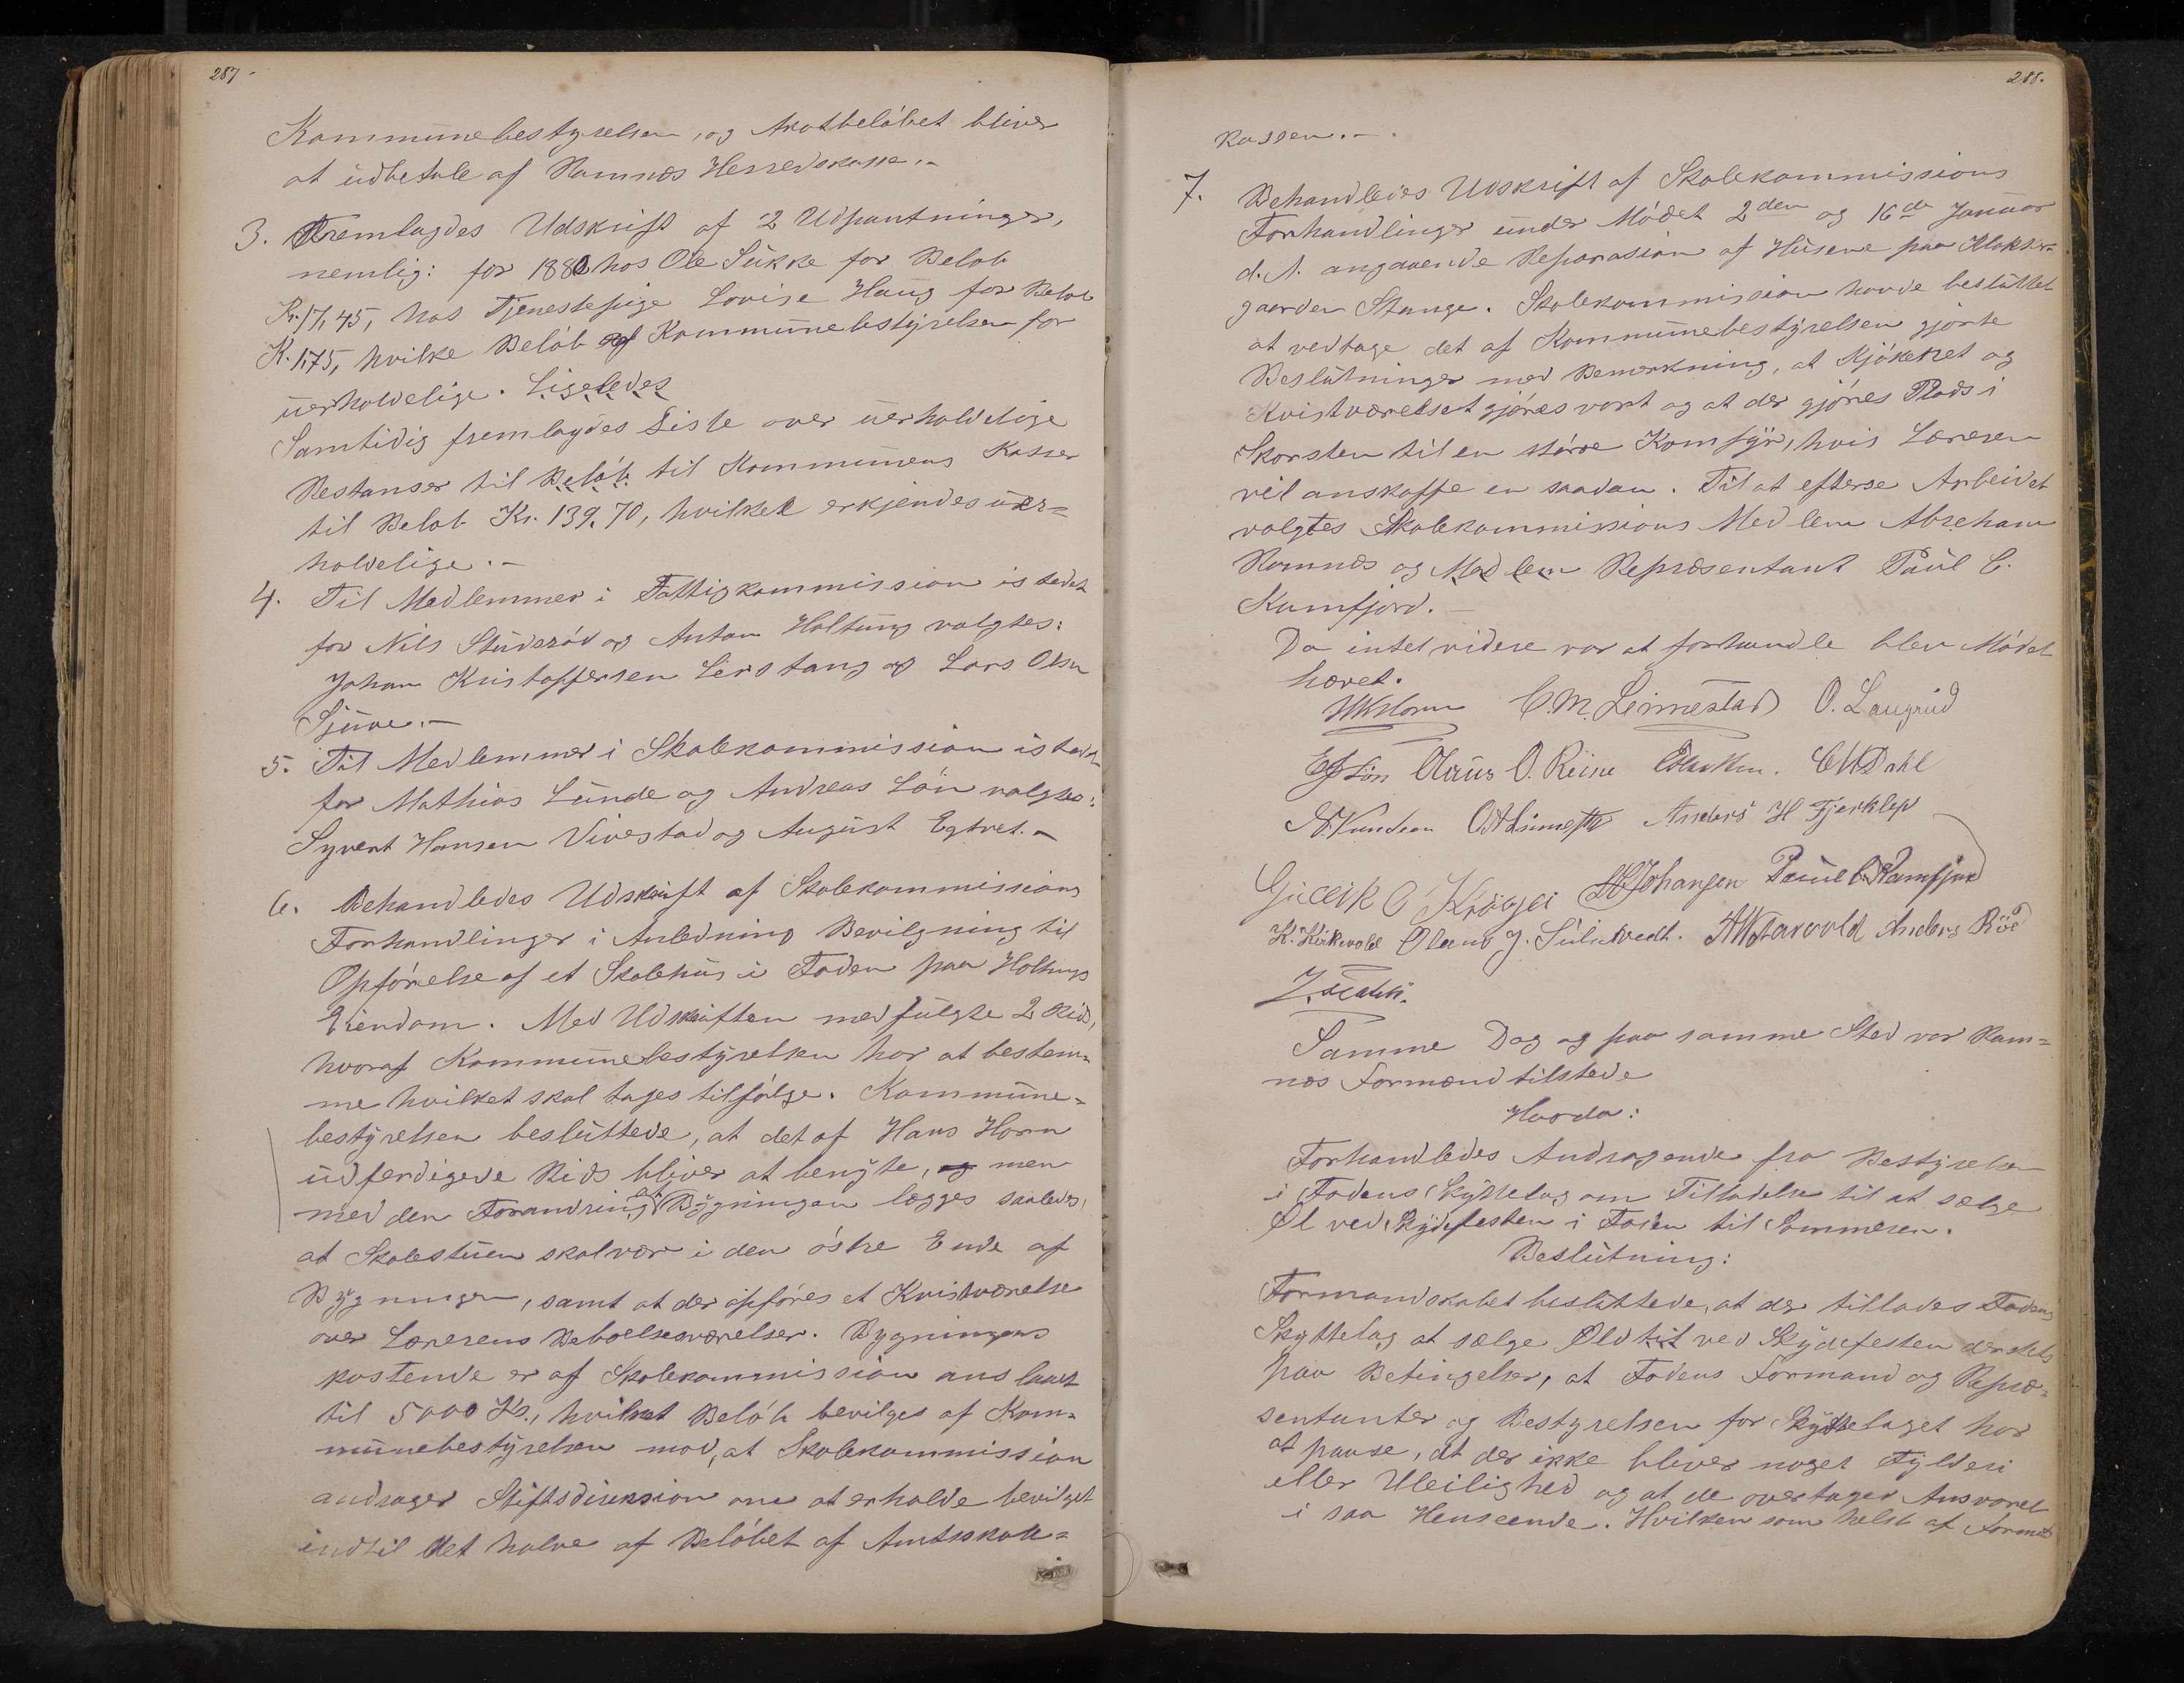 287 -
Kommunebestyrelsen, og Akotbeløbet bliver
at udbetale af Ramnæs Herredskasse. -
3. Fremlagdes Udskrift af 2 Udpantninger,
nemlig: for 1880 hos Ole Sukke for Beløb
Kr. 17,45, hos Tjenestepige Lovise Haug for Beløb
K. 1,75, hvilke Beløb af Kommunebestyrelsen for
uerholdelige. Ligeledes
Samtidig fremlagdes Liste over uerholdelige
Restanser til Beløb til Kommunens Kasser
til Beløb Kr. 139,70, hvilket erkjendes uer=
holdelige. -
4. Til Medlemmer i Fattigkommission istedet
for Nils Studerød og Anton Holtung valgtes:
Johan Kristoffersen Lerstang og Lars Olsen
Sjuve. -
5. Til Medlemmer i Skolekommission istedet
for Mathias Lunde og Andreas Lön valgtes:
Syvert Hansen Vivestad og August Egtvet. -
6. Behandledes Udskrift af Skolekommissions
Forhandlinger i Anledning Bevilgning til
Opførelse af et Skolehus i Foden paa Holtungs
Eiendom. Med Udskriften medfulgte 2 Rids,
hvoraf Kommunebestyrelsen har at bestem=
me hvilket skal tages tilfølge. Kommune=
bestyrelsen besluttede, at det af Hans Horn
udferdigede Rids bliver at benytte, og men
med den Forandring at Bygningen lægges saaledes,
at Skolestuen skal vær i den østre Ende af
Bygningen, samt at der opføres et Kvistværelse
over Lærerens Beboelsesværelser. Bygningens
kostende er af Skolekommission anslaaet
til 5000 Kr., hvilket Beløb bevilges af Kom=
munebestyrelsen mod, at Skolekommission
andrager Stiftsdireksion om at erholde bevilget
indtil det halve af Beløbet af Amtsskole=
288.
kassen. -
7. Behandledes Udskrift af Skolekommissions
Forhandlinger under Mødet 2den og 16de Januar
d. A. angaaende Reparasion af Husene paa Klokker=
gaarden Stange. Skolekommission havde besluttet
at vedtage det af Kommunebestyrelsen gjorte
Beslutninger med Bemerkning, at Kjøkenet og
Kvistværelset gjøres vart og at der gjøres Plads i
Skorsten til en større Komfyr, hvis Læreren
vil anskaffe en saadan. Til at efterse Arbeidet
valgtes Skolekommissions Medlem Abraham
Ramnæs og Medlem Repræsentant Paul C.
Kamfjord. -
Da intet videre var at forhandle blev Mødet
hævet.
HKHorn C. M. Linnestad O. Laugrud
Olaus O. Reine CHDahl
N. Knudsen Anders H Fjerklep
Gullik O Krøgli Johansen Paul C. Kamfjord
K. Kirkevold Olaus J. Sulutvedt. Starvold Anders Röd
Samme Dag og paa samme Sted var Ram=
næs Formænd tilstede
Hvorda:
Forhandledes Andragende fra Bestyrelsen
i Fodens Skyttelag om Tilladelse til at sælge
Øl ved Skydefesten i Foden til Sommeren.
Beslutning:
Formandskabet besluttede, at der tillades Fodens
Skyttelag at sælge Øl til ved Skydefesten dersteds
paa Betingelser, at Fodens Formand og Repræ=
sentanter og Bestyrelsen for Skyttelaget har
at paase, at der ikke bliver noget Fylderi
eller Uleilighed og at de overtager Ansvaret
i saa Henseende. Hvilken som helst af Formd